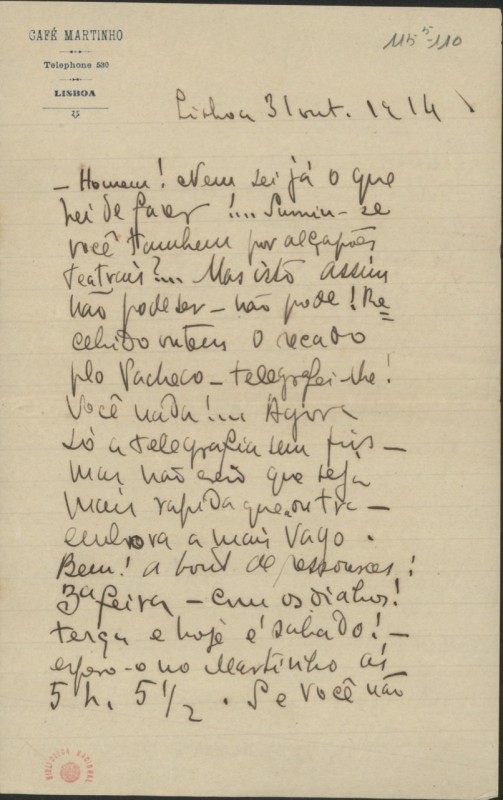 CAFÉ MARTINHO
Telephone 530
LISBOA
115⁵-110
Lisboa 31 out. 1914
– Homem! Nem sei já o que
hei de fazer!... Sumiu-se
você tambem por alçapões
teatrais?... Mas isto assim
não pode ser – não pode! Re-
cebido ontem o recado
plo Pacheco – telegrafei-lhe!
Você nada!... Agora
só a telegrafia sem fios –
mas não creio que seja
mais rapida que a outra –
embora a mais vago.
Bem! a bout de ressources!
3ª feira – com os diabos!
terça e hoje é sabado! –
espero-o no Martinho ás
5 h. 5 1/2. Se você não
BIBLIOTECA NACIONAL